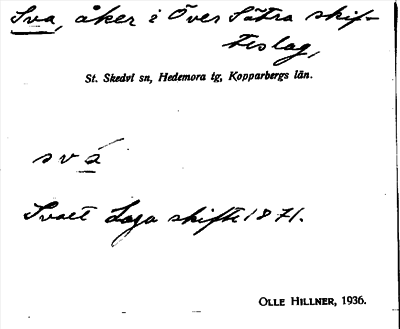 Sva, åker i Över Sätra skif-
teslag,
St. Skedvi sn, Hedemora tg, Kopparbergs län.
svá
Svact Laga skifte 1871.
OLLE HILLNER, 1936.